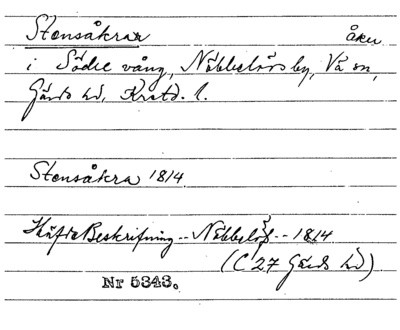 Stensåkrar åker
i Södre vång, Näbbelövs by, Vä sn,
Gärds hd, Krstd. l.
Stensåkra 1814
Häfte Beskrifning -- Näbbelöf -- 1814
(C 27 Gärds hd)
Nr 5343.